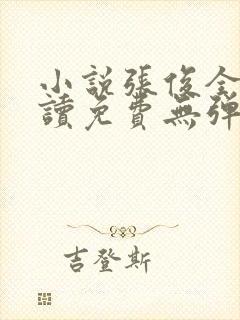 小説張俊全
讀免費無彈
吉登斯